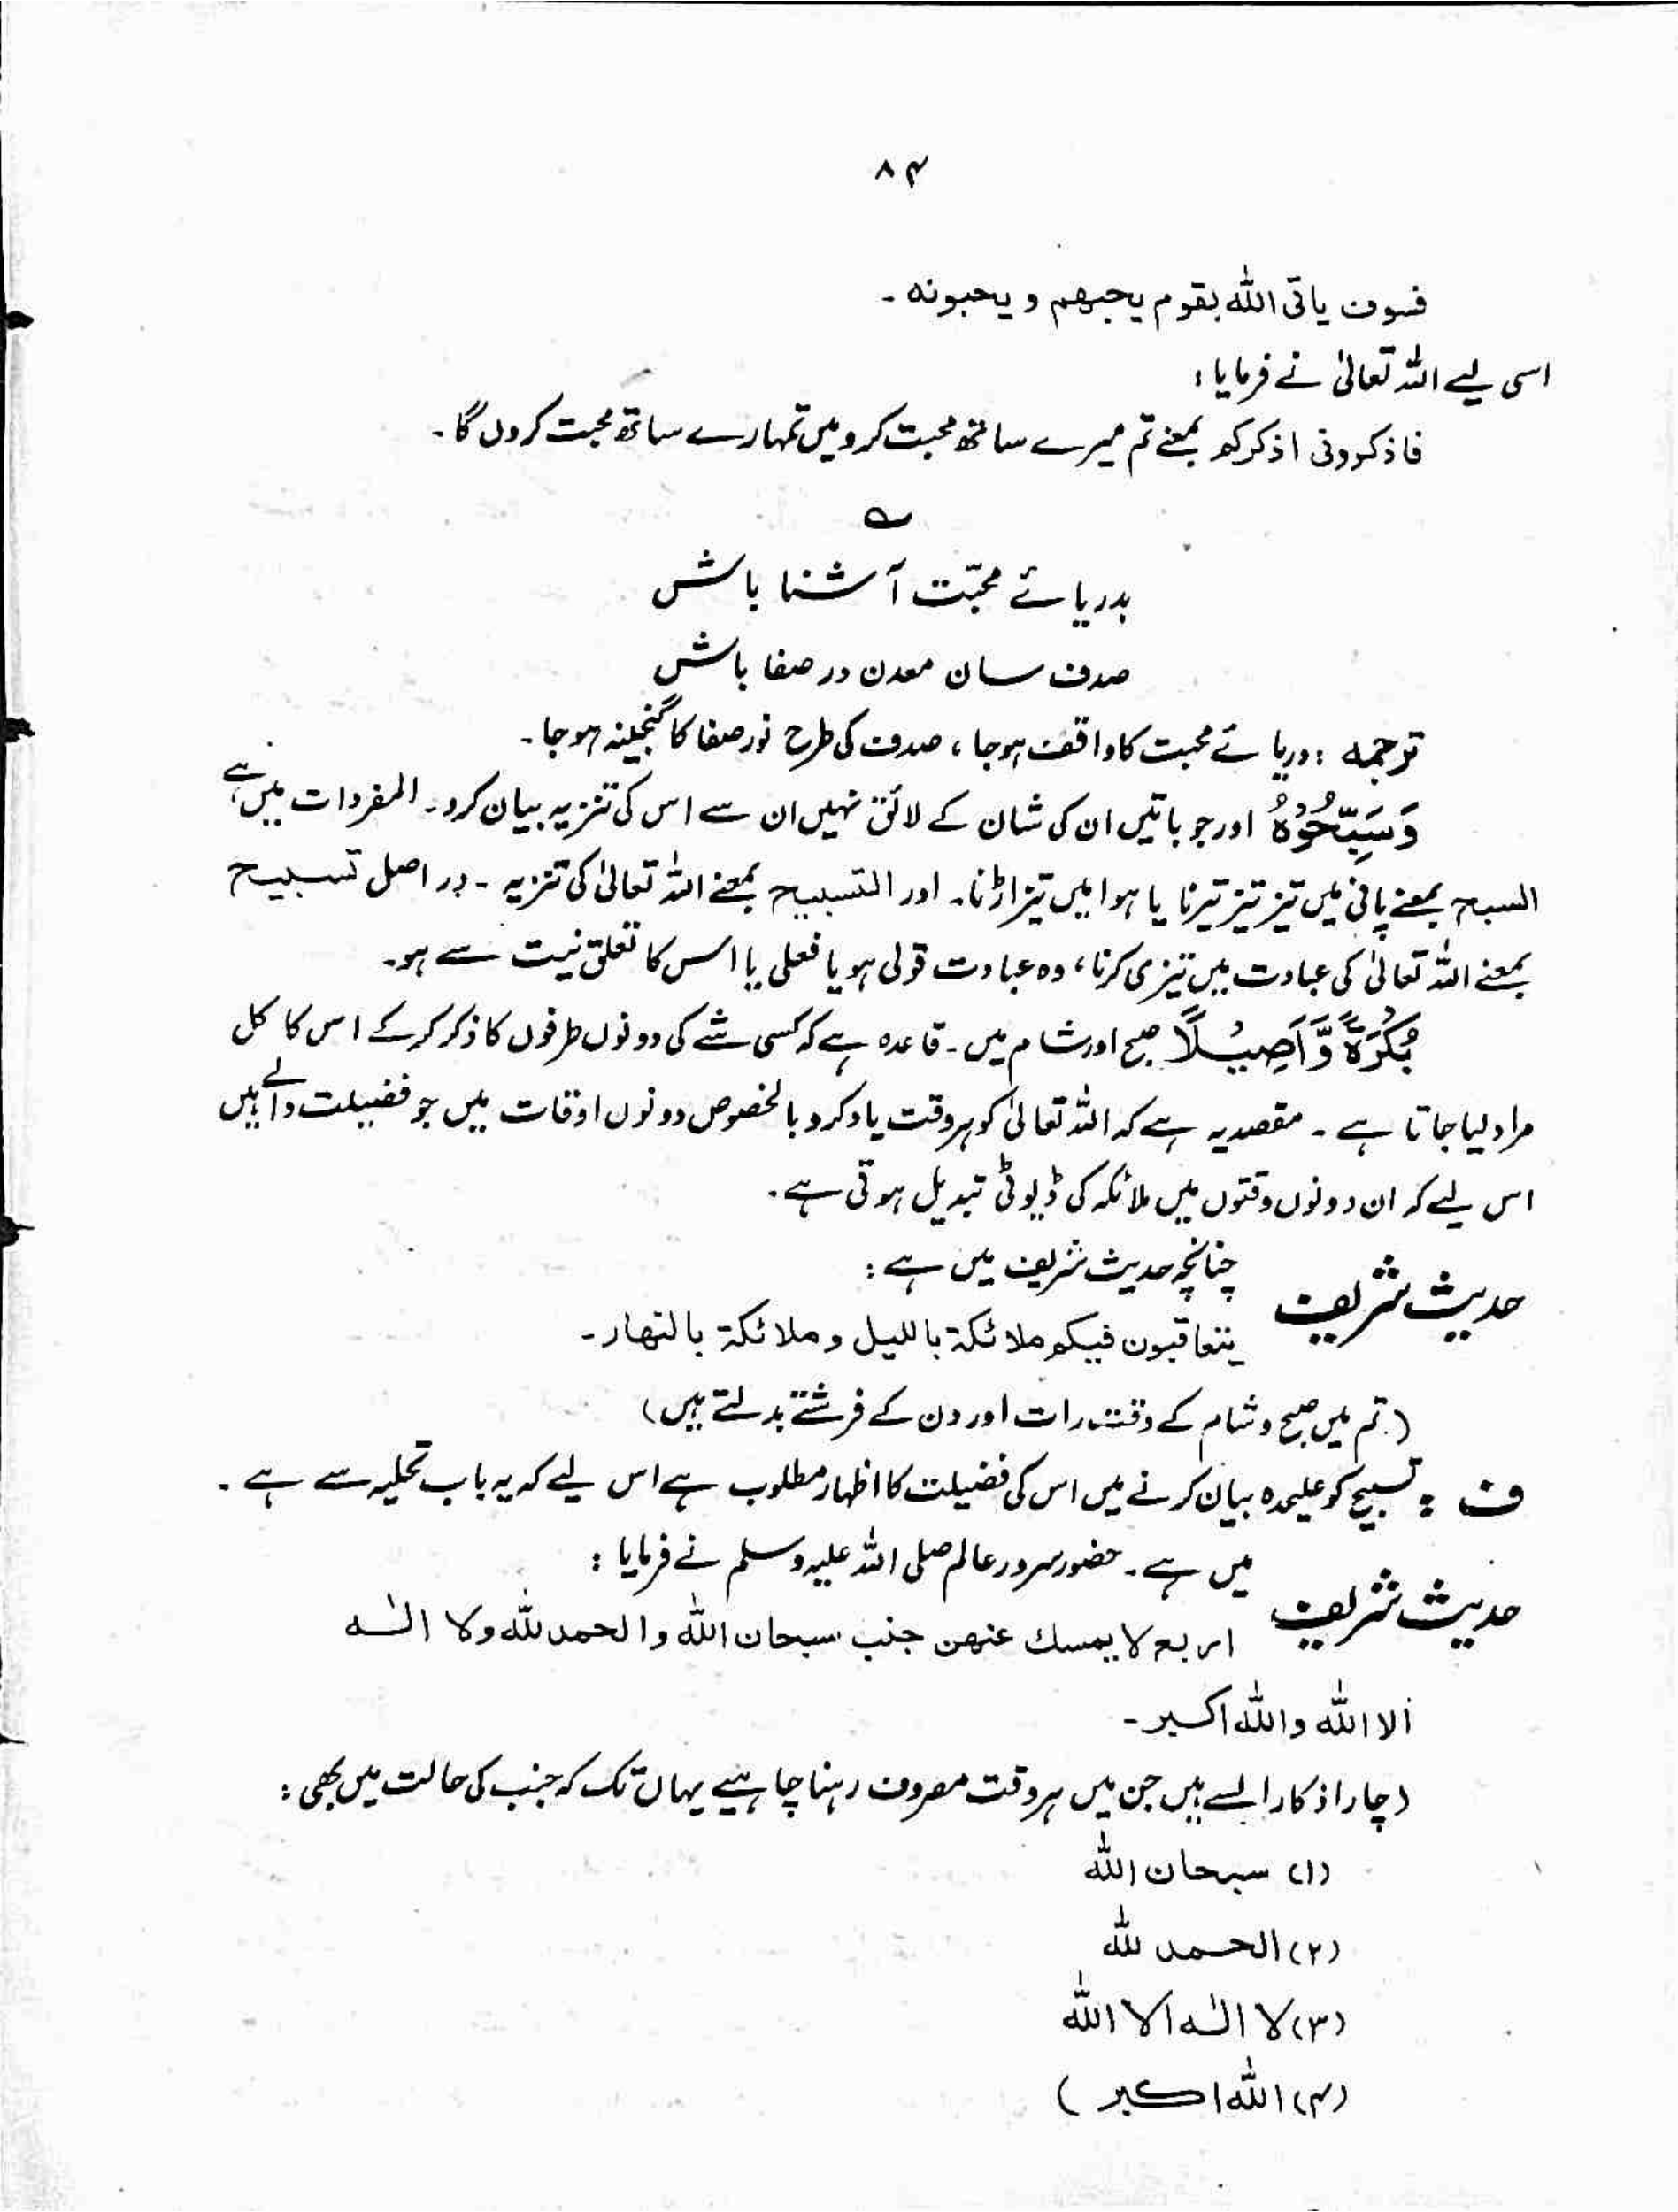 ۸۴
فسوف یاتی اللہ بقوم یحبھم و یحبونہ ۔
اسی لیے اللہ تعالیٰ نے فرمایا :
فاذکرونی اذکرکم بمعنے تم میرے ساتھ محبت کرو میں تمہارے ساتھ محبت کروں گا ۔
؎
بدریائے محبّت آشنا باش
صدف سان معدن در صفا باش
ترجمہ : دریائے محبت کا واقف ہو جا ، صدف کی طرح نور صفا کا گنجینہ ہو جا ۔
وَسَبِّحُوْہُ اور جو باتیں ان کی شان کے لائق نہیں ان سے اس کی تنزیہ بیان کرو ۔ المفردات میں ہے
السبح بمعنے پانی میں تیز تیز تیرنا یا ہوا میں تیز اڑنا ۔ اور التسبیح بمعنے اللہ تعالیٰ کی تنزیہ ۔ در اصل تسبیح
بمعنے اللہ تعالیٰ کی عبادت میں تیزی کرنا ، وہ عبادت قولی ہو یا فعلی یا اس کا تعلق نیت سے ہو ۔
بُکْرَۃً وَّاَصِیْلًا صبح اور شام میں ۔ قاعدہ ہے کہ کسی شے کی دونوں طرفوں کا ذکر کر کے اس کا کل
مراد لیا جاتا ہے ۔ مقصد یہ ہے کہ اللہ تعالیٰ کو ہر وقت یاد کرو بالخصوص دونوں اوقات میں جو فضیلت والے ہیں
اس لیے کہ ان دونوں وقتوں میں ملائکہ کی ڈیوٹی تبدیل ہوتی ہے ۔
حدیث شریف چنانچہ حدیث شریف میں ہے :
یتعاقبون فیکم ملائکۃ باللیل و ملائکۃ بالنھار ۔
( تم میں صبح و شام کے وقت رات اور دن کے فرشتے بدلتے ہیں )
ف : تسبیح کو علیحدہ بیان کرنے میں اس کی فضیلت کا اظہار مطلوب ہے اس لیے کہ یہ باب تحلیہ سے ہے ۔
حدیث شریف میں ہے ۔ حضور سرور عالم صلی اللہ علیہ وسلم نے فرمایا :
اربع لا یمسک عنھن جنب سبحان اللہ والحمد للہ ولا الٰہ
الا اللہ واللہ اکبر ۔
( چار اذکار ایسے ہیں جن میں ہر وقت مصروف رہنا چاہیے یہاں تک کہ جنب کی حالت میں بھی :
(۱) سبحان اللہ
(۲) الحمد للہ
(۳) لا الٰہ الا اللہ
(۴) اللہ اکبر )